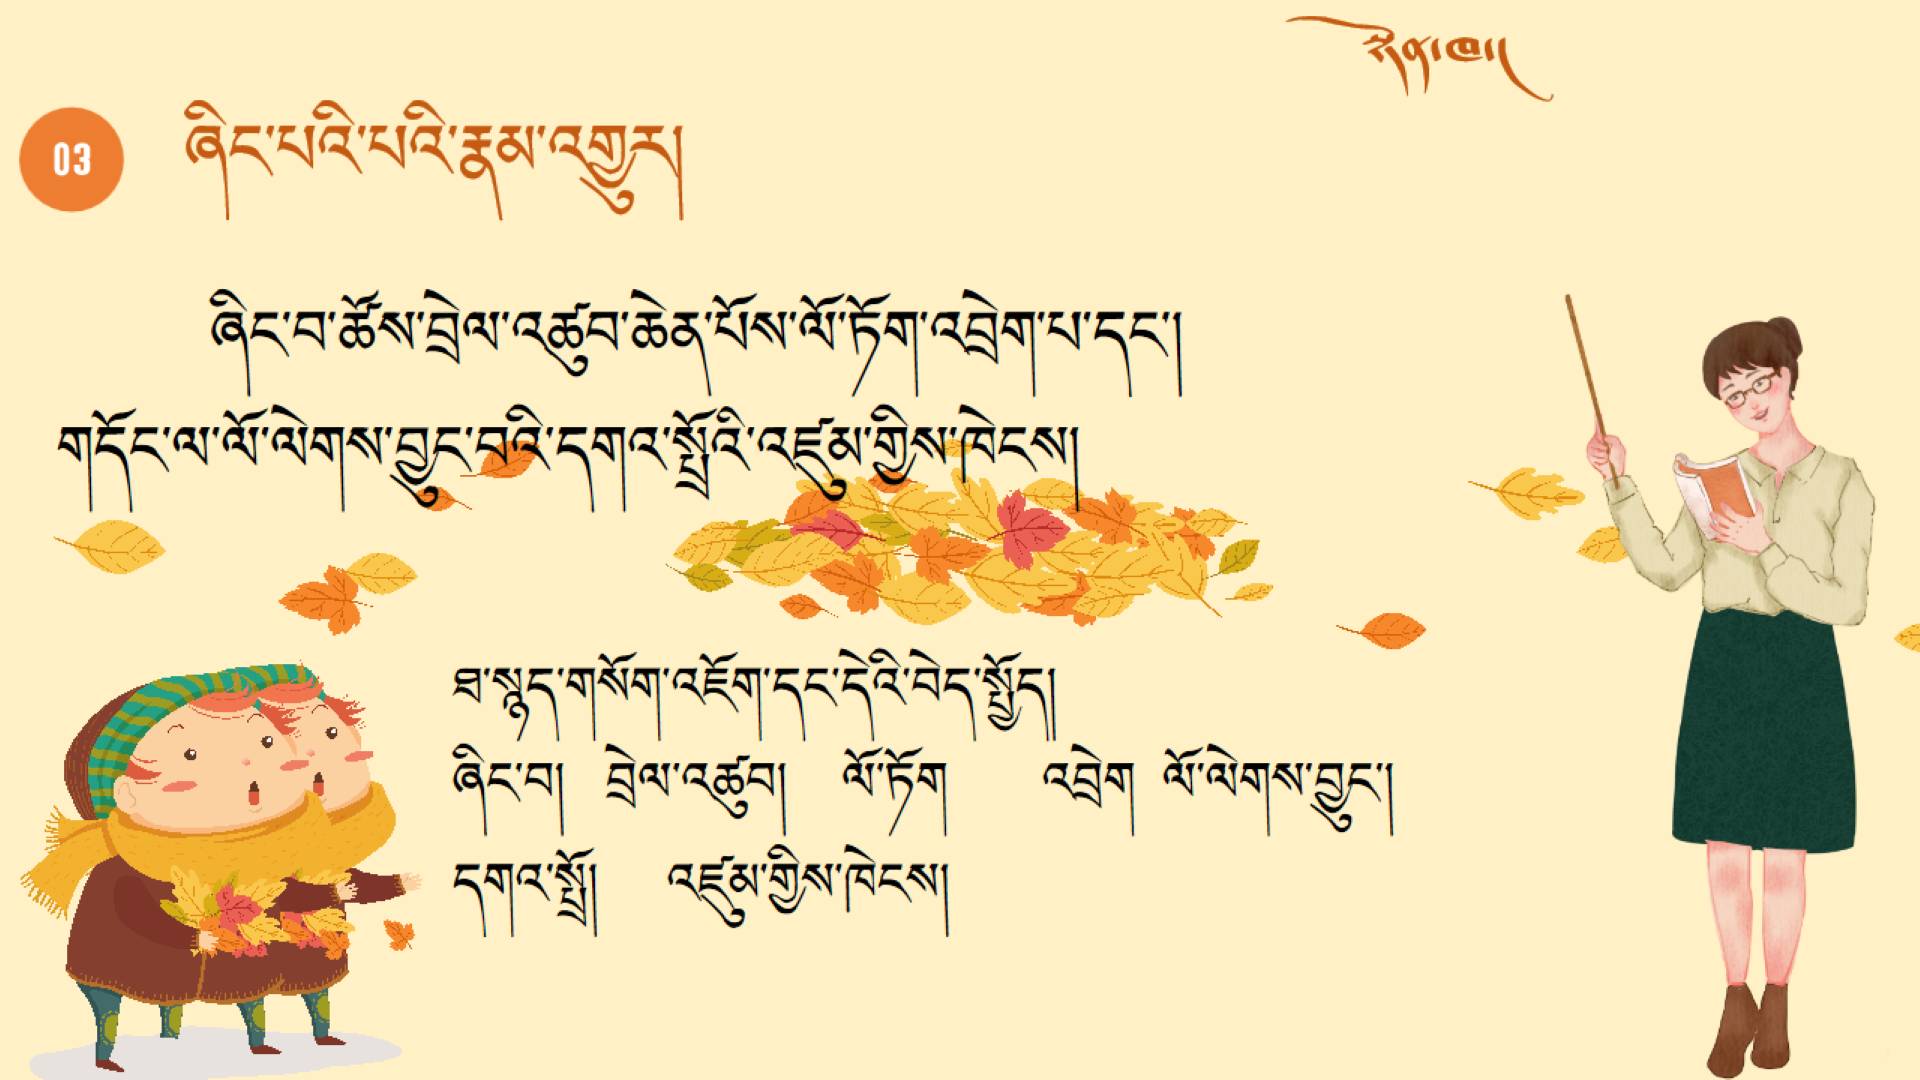 སྟོན་ཁ།
03
ཞིང་པའི་པའི་རྣམ་འགྱུར།
ཞིང་བ་ཚོས་བྲེལ་འཚུབ་ཆེན་པོས་ལོ་ཏོག་འབྲེག་པ་དང་།
གདོང་ལ་ལོ་ལེགས་བྱུང་བའི་དགའ་སྤྲོའི་འཛུམ་གྱིས་ཁེངས།
ཐ་སྙད་གསོག་འཇོག་དང་དེའི་བེད་སྤྱོད།
ཞིང་བ། བྲེལ་འཚུབ། ལོ་ཏོག འབྲེག ལོ་ལེགས་བྱུང་།
དགའ་སྤྲོ། འཛུམ་གྱིས་ཁེངས།